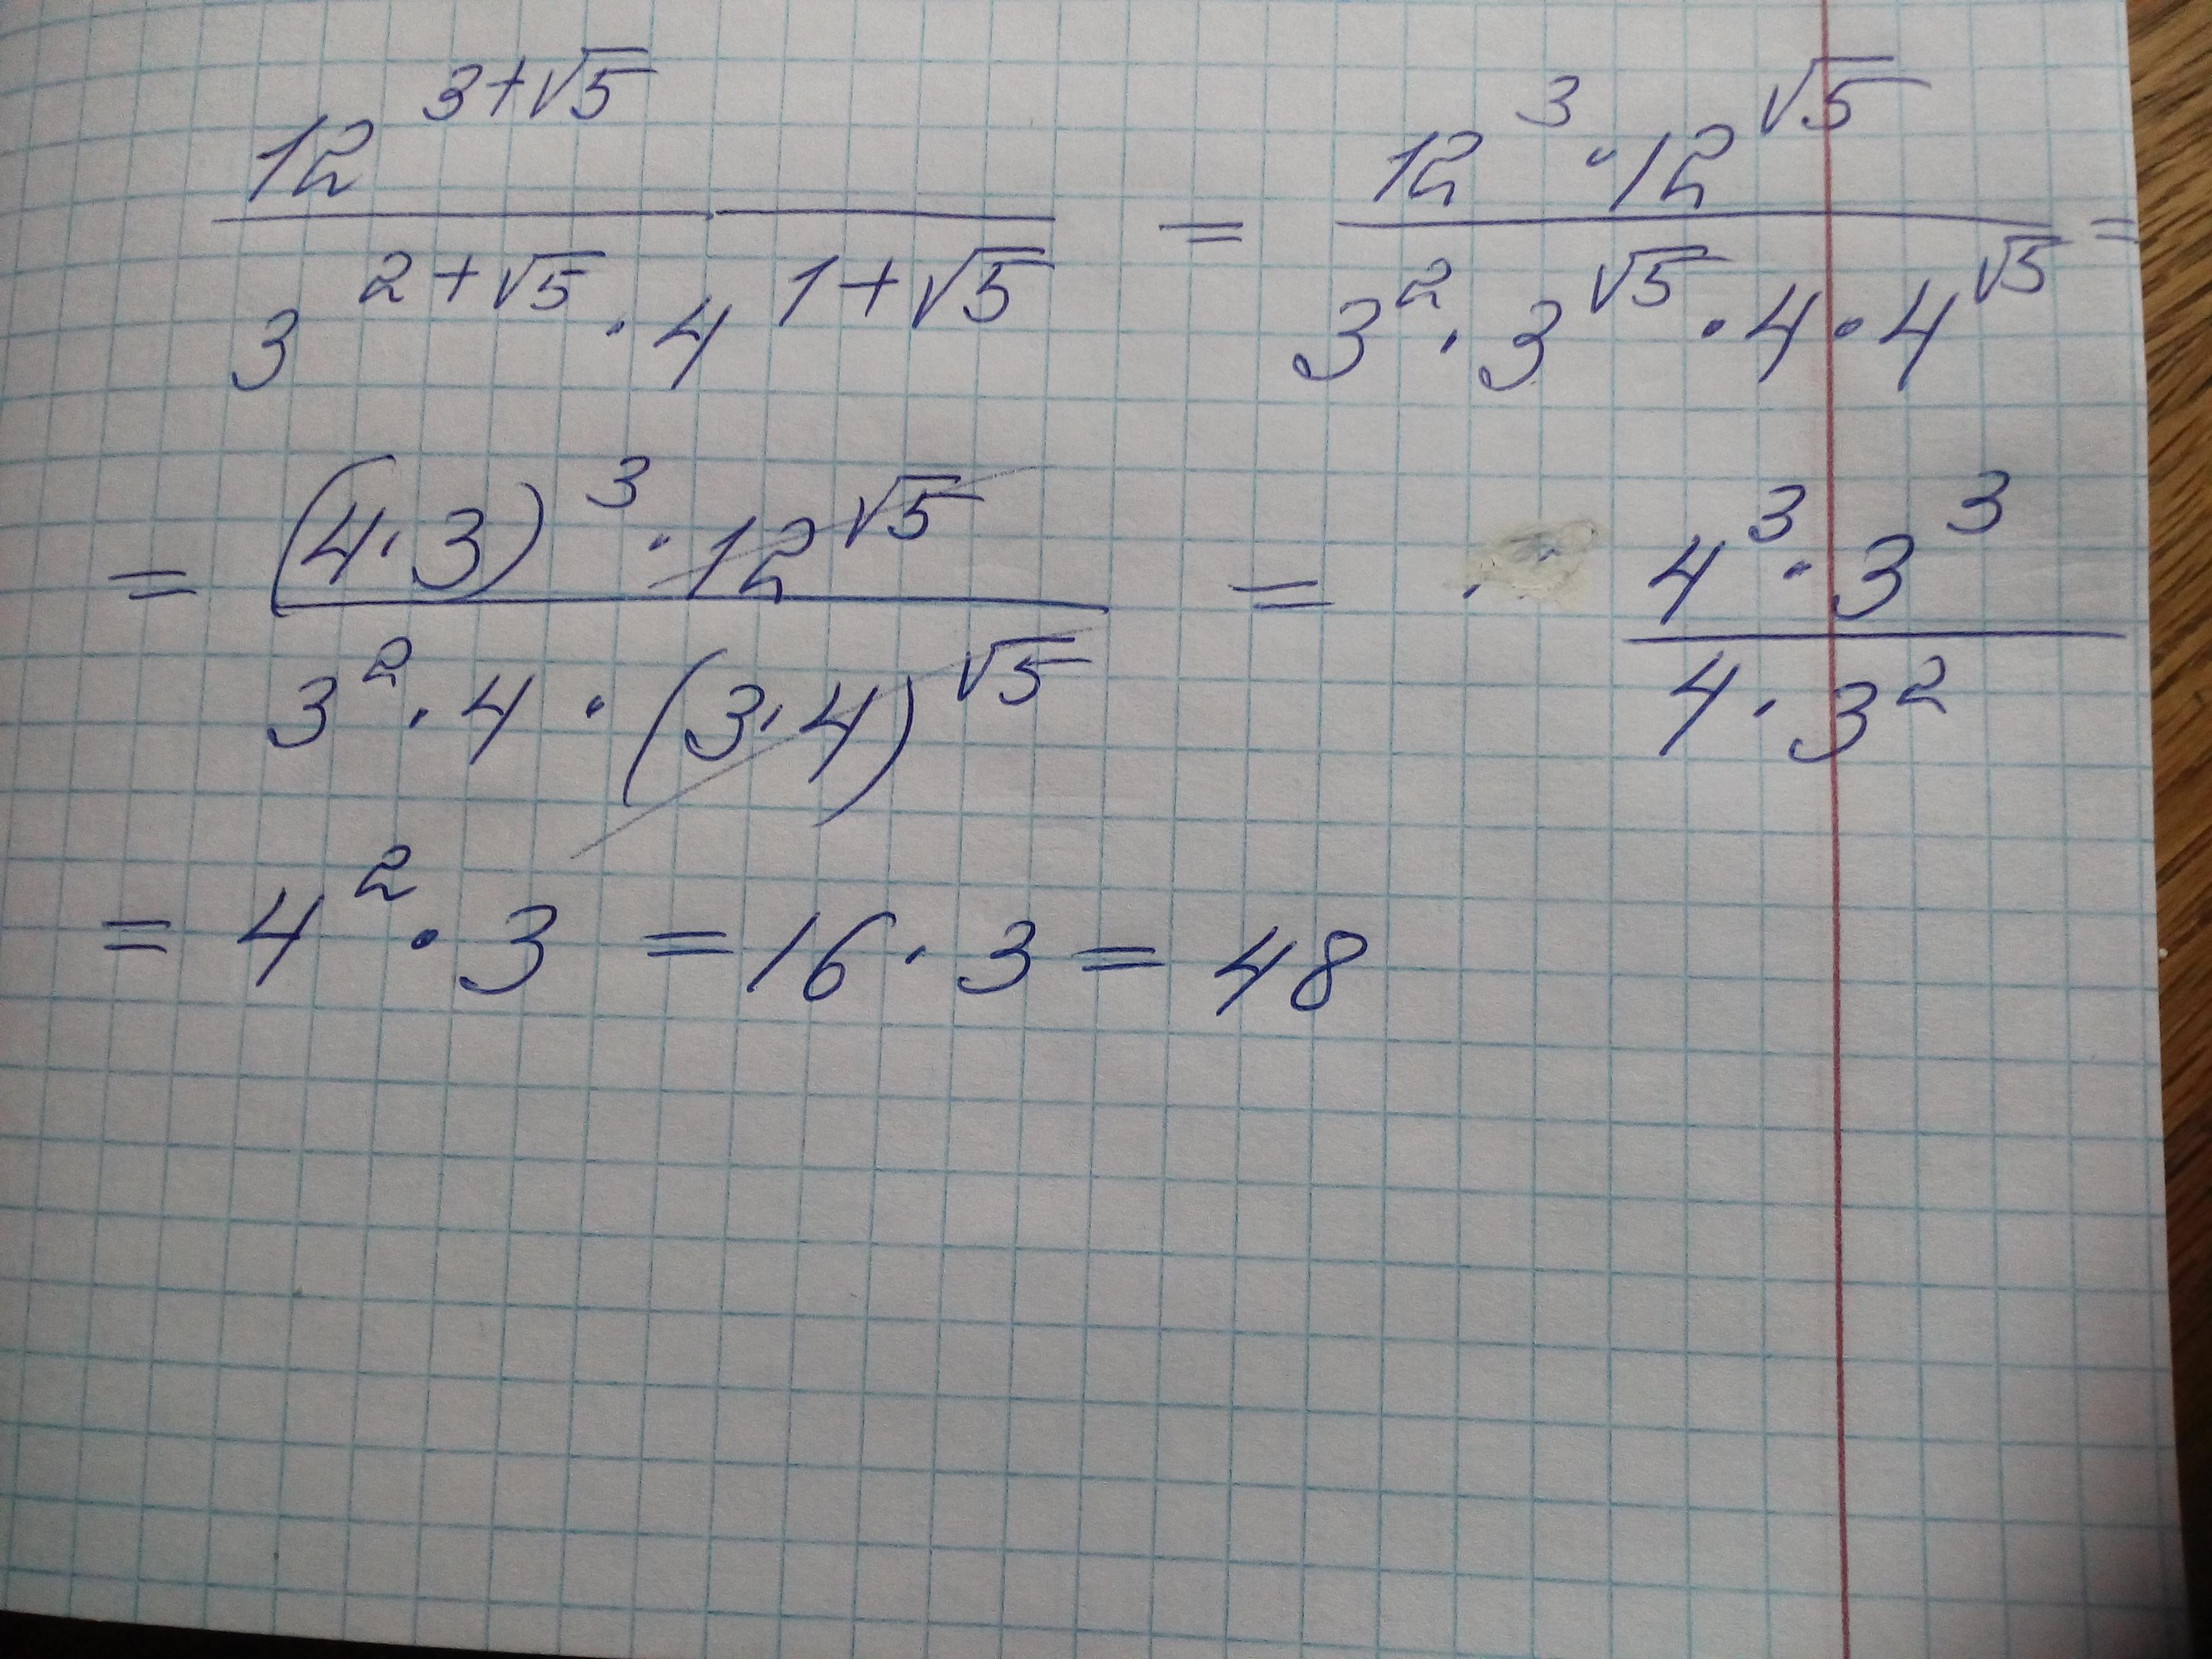 12^(3+√5) / (3^(2+√5) · 4^(1+√5)) = (12^3 · 12^√5) / (3^2 · 3^√5 · 4 · 4^√5) =
= ((4·3)^3 · 12^√5) / (3^2 · 4 · (3·4)^√5) = (4^3 · 3^3) / (4 · 3^2)
= 4^2 · 3 = 16 · 3 = 48